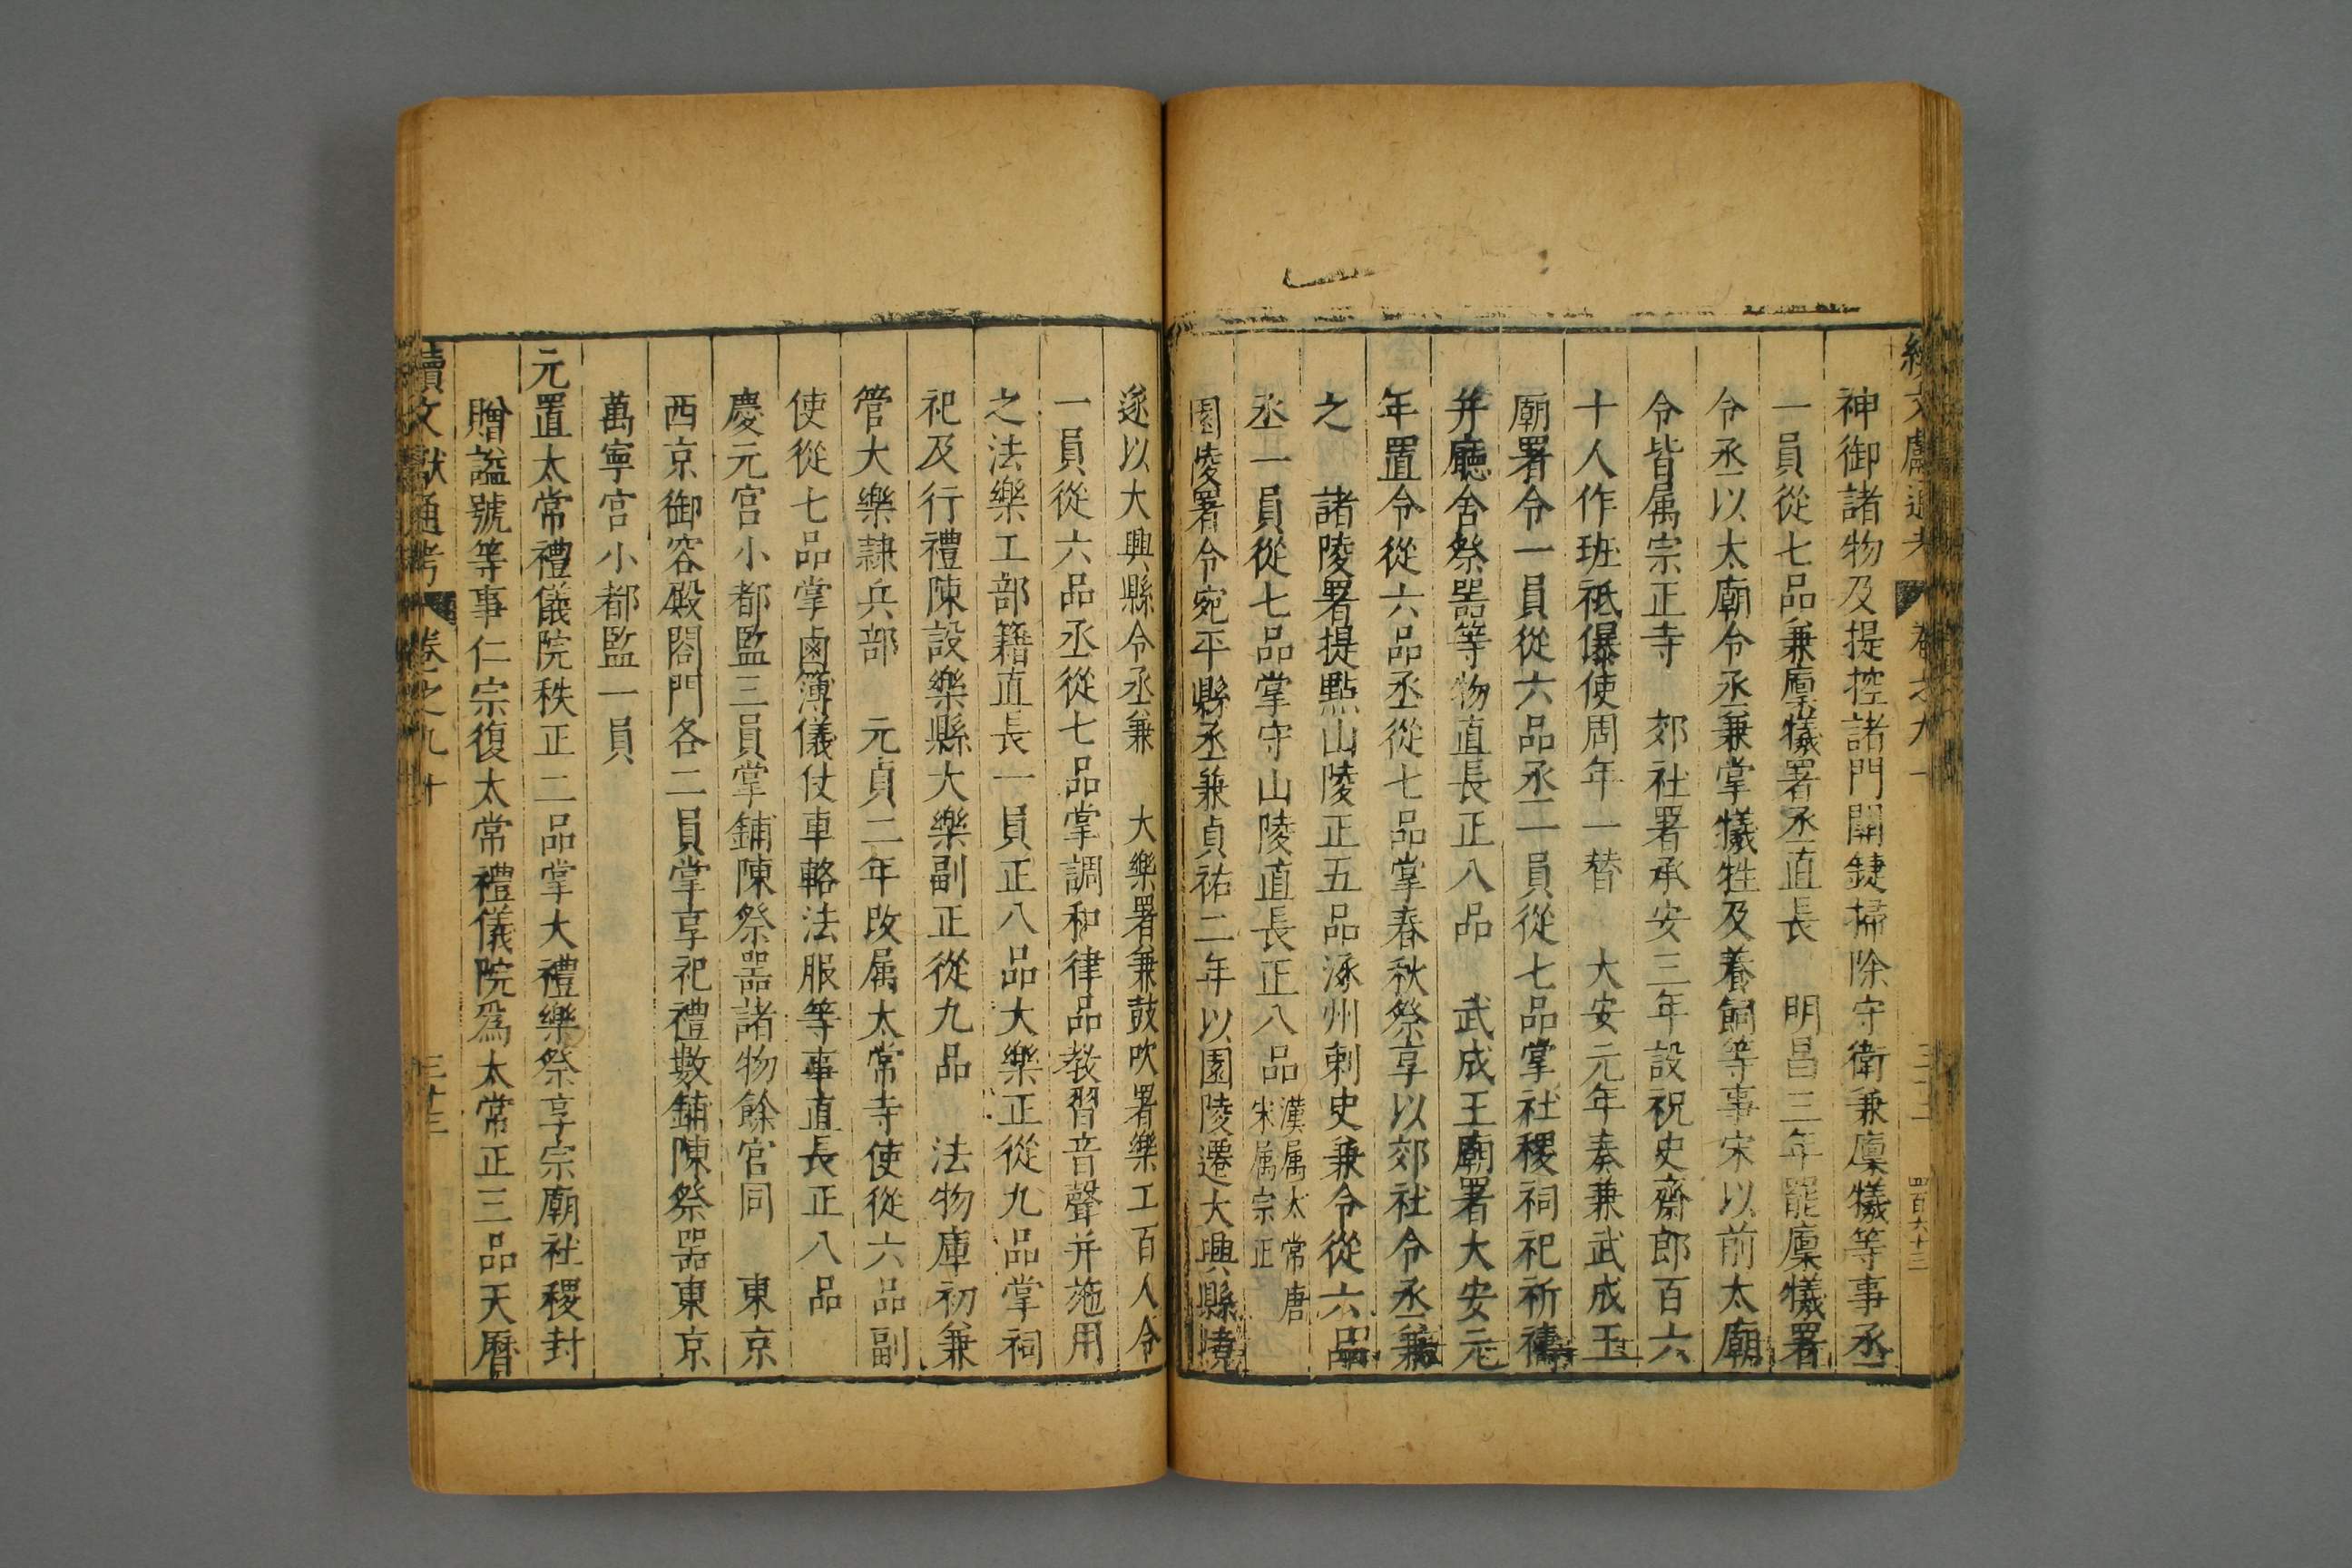 神御諸物及提控諸門關鍵掃除守衛兼廩犧等事丞
一員從七品兼廩犧署丞直長　明昌三年罷廩犧署
令丞以太廟令丞兼掌犧牲及養飼等事宋以前太廟
令皆属宗正寺　郊社署承安三年設祝史齋郎百六
十人作班祗𠎝使周年一替　大安元年奏兼武成王
廟署令一員從六品丞二員從七品掌社稷祠祀祈禱
并廳舍祭器等物直長正八品　武成王廟署大安元
年置令從六品丞從七品掌春秋祭享以郊社令丞兼
之　諸陵署提㸃山陵正五品涿州刺史兼令從六品
丞一員從七品掌守山陵直長正八品漢属太常唐宋属宗正
園陵署令宛平縣丞兼貞祐二年以園陵遷大興縣境
遂以大興縣令丞兼　大樂署兼鼓吹署樂工百人令
一員從六品丞從七品掌調和律品教習音聲并施用
之法樂工部籍直長一員正八品大樂正從九品掌祠
祀及行禮陳設樂縣大樂副正從九品　法物庫初兼
管大樂隷兵部　元貞二年改属太常寺使從六品副
使從七品掌鹵簿儀仗車輅法服等事直長正八品
慶元宮小都監三員掌鋪陳祭器諸物餘官同　東京
西京御容殿閤門各二員掌享祀禮數鋪陳祭器東京
萬寧宮小都監一員
元置太常禮儀院秩正二品掌大禮樂祭享宗廟社稷封
贈謚號等事仁宗復太常禮儀院爲太常正三品天曆
續文獻通考　卷之九十　三十三